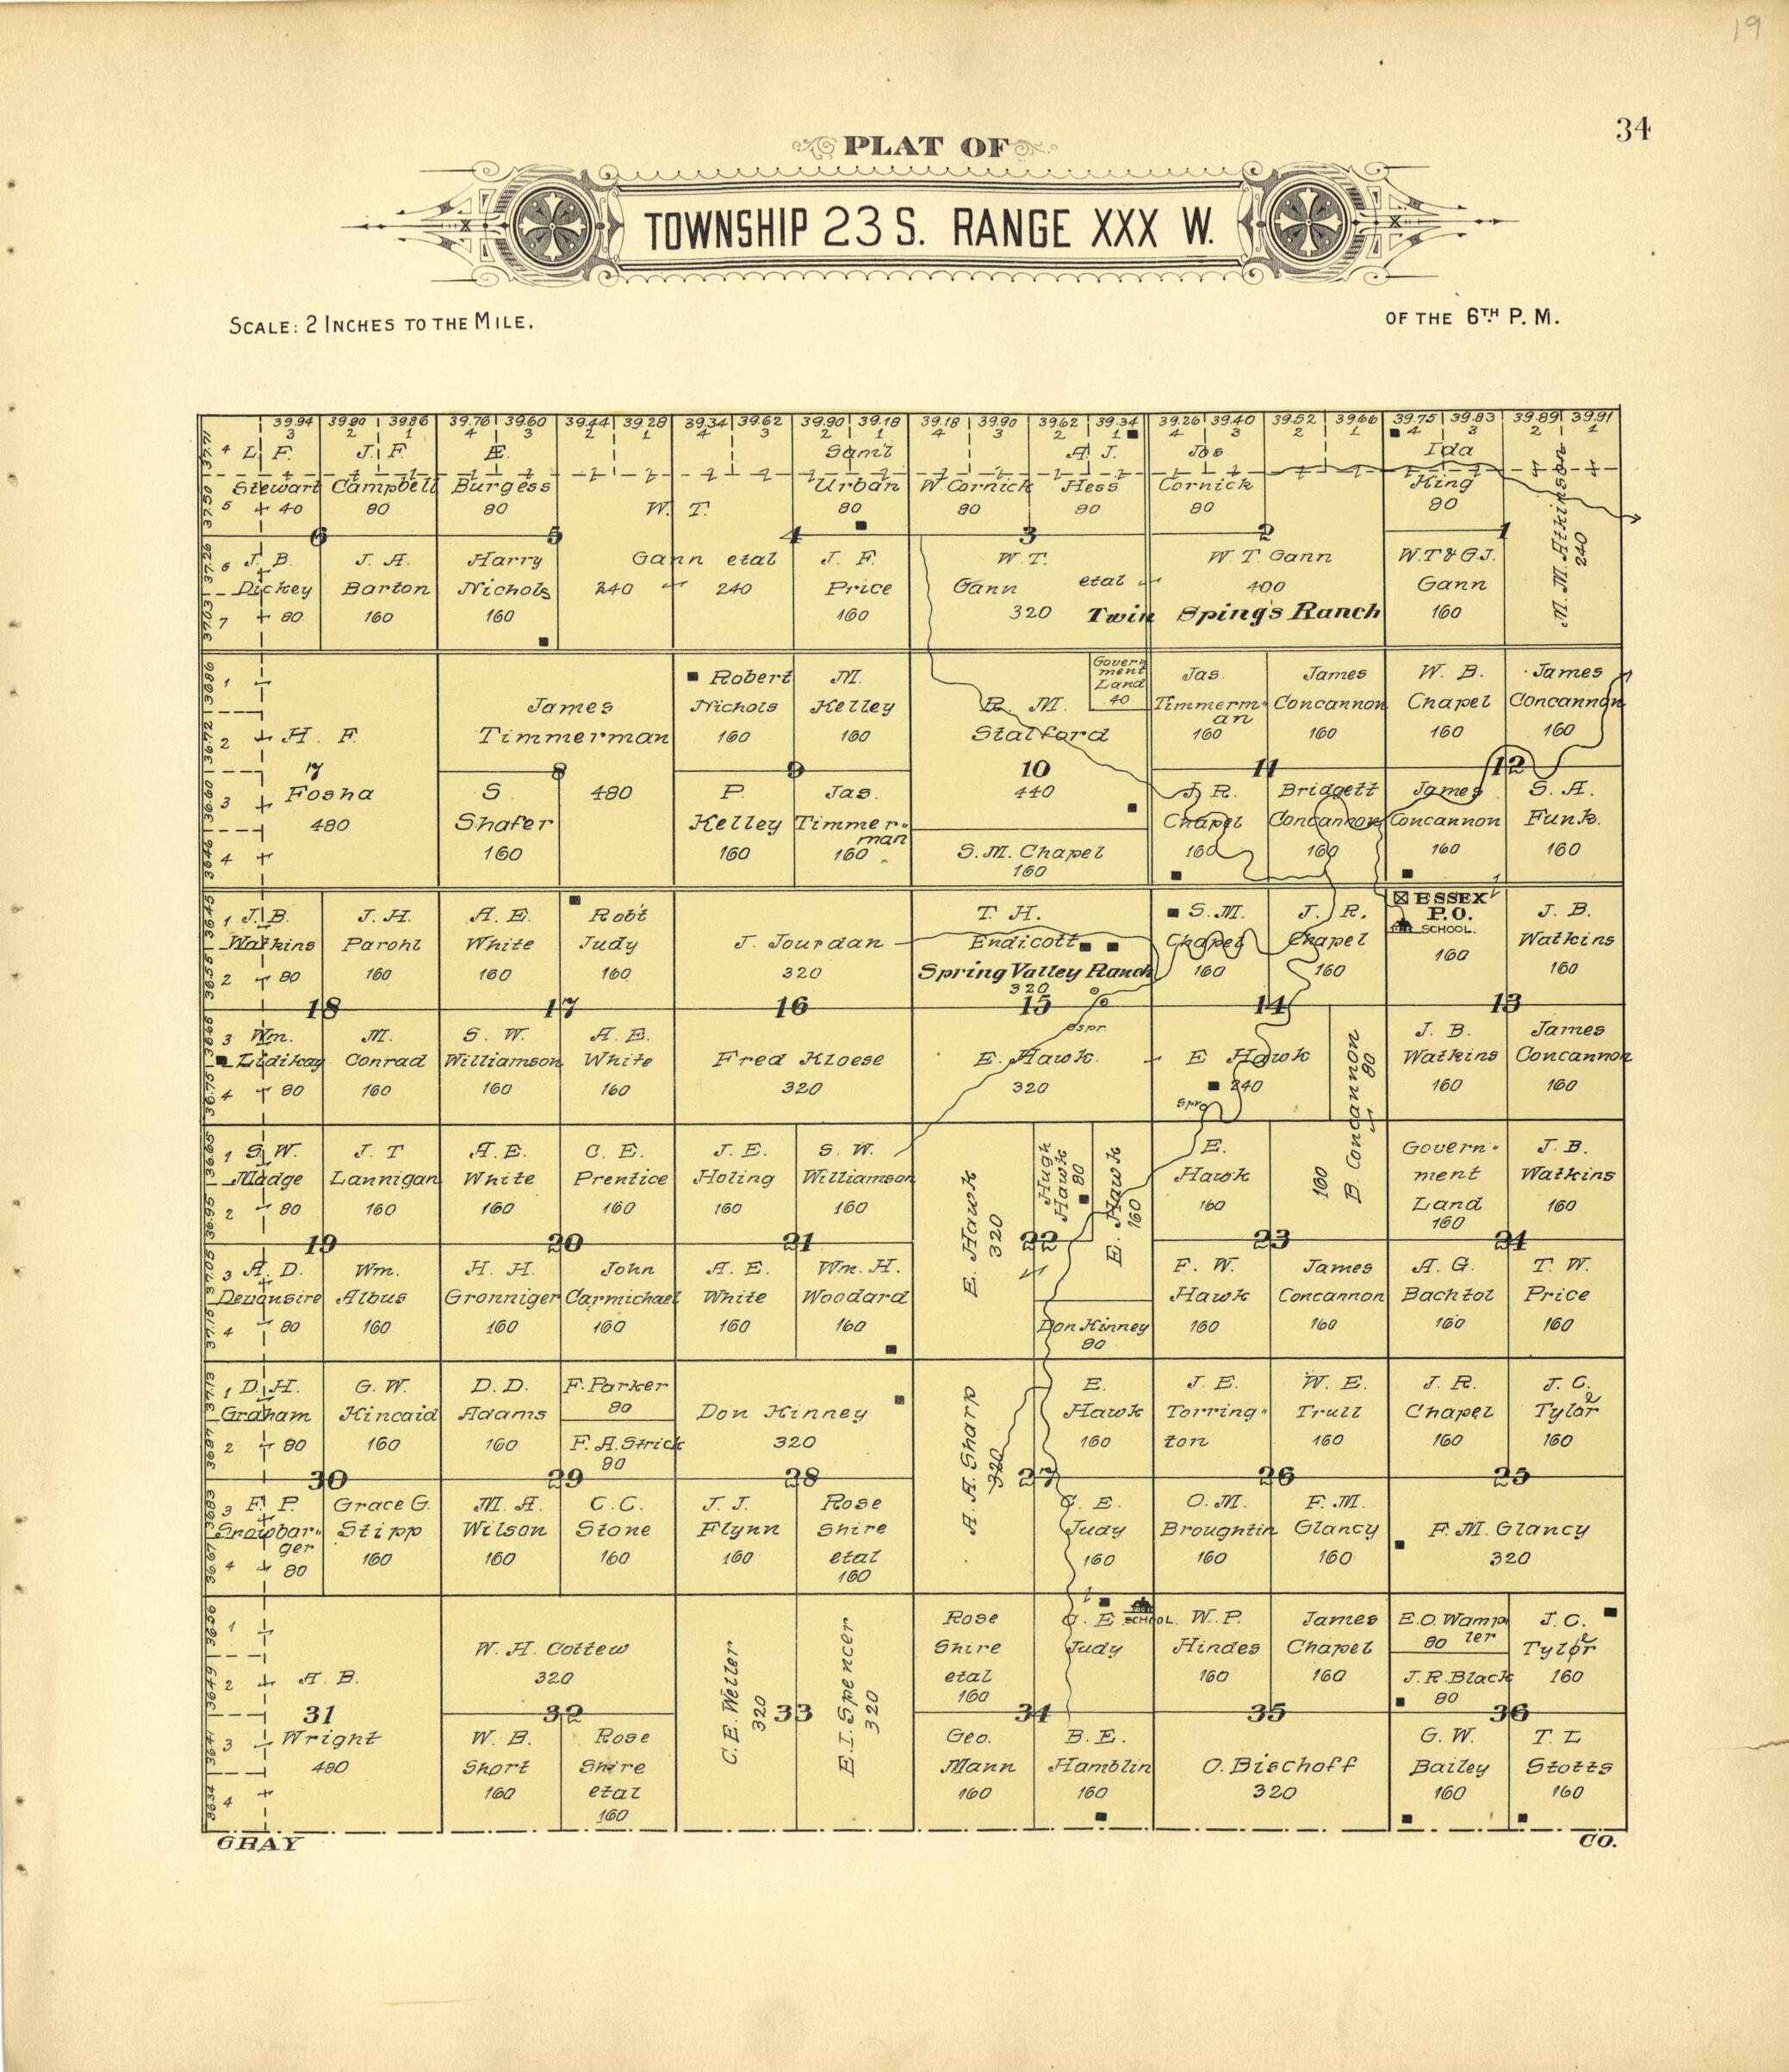 19
34
PLAT OF
TOWNSHIP 23 S. RANGE XXX W.
SCALE: 2 INCHES TO THE MILE.
OF THE 6TH P. M.
39.94 39.90 39.86 39.76 39.60 39.44 39.28 39.34 39.62 39.90 39.18 39.18 39.90 39.62 39.34 39.26 39.40 39.52 39.66 39.75 39.83 39.89 39.91
3 2 1 4 3 2 1 4 3 2 1 4 3 2 1 4 3 2 1 4 3 2 1
37.71 4 L. F. Stewart 5 40
37.50
J. F. Campbell 80
E. Burgess 80
W. T. Gann etal 240 240
Sam'l Urban 80
W. Cornick 80
A. J. Hess 80
Jos Cornick 80
Ida King 80
M. M. Atkinson 240
6 5 4 3 2 1
37.26 6 J. B. Dickey 7 80
37.03
J. A. Barton 160
Harry Nichols 160
J. F. Price 160
W. T. Gann etal 320
W. T. Gann 400
Twin Spings Ranch
W.T & G.J. Gann 160
36.86 1
36.72 2
36.60 3
36.46 4
H. F. Fosha 480
James Timmerman 480
Robert Nichols 160
M. Kelley 160
R. M. Stalford 440
Government Land 40
Jas. Timmerman 160
James Concannon 160
W. B. Chapel 160
James Concannon 160
7 8 9 10 11 12
S Shafer 160
P. Kelley 160
Jas. Timmerman 160
S. M. Chapel 160
J. R. Chapel 160
Bridgett Concannon 160
James Concannon 160
S. A. Funk. 160
36.45 1 J. B. Watkins 2 80
36.55
J. H. Parohl 160
A. E. White 160
Rob't Judy 160
J. Jourdan 320
T. H. Endicott
Spring Valley Ranch
320
S. M. Chapel 160
J. R. Chapel 160
ESSEX P.O.
SCHOOL.
160
J. B. Watkins 160
18 17 16 15 14 13
36.65 3 Wm. Lidikay 4 80
36.75
M. Conrad 160
S. W. Williamson 160
A. E. White 160
Fred Kloese 320
E. Hawk. 320
Spr.
E Hawk 240
Spr
B. Concannon 80
160
J. B. Watkins 160
James Concannon 160
36.85 1 S. W. Madge 2 80
36.95
J. T Lannigan 160
A. E. White 160
C. E. Prentice 160
J. E. Holing 160
S. W. Williamson 160
E. Hawk 320
Hugh Hawk 80
E. Hawk 160
E. Hawk 160
Government Land 160
J. B. Watkins 160
19 20 21 22 23 24
37.05 3 A. D. Devonsire 4 80
37.15
Wm. Albus 160
H. H. Gronniger 160
John Carmichael 160
A. E. White 160
Wm. H. Woodard 160
Don Kinney 80
F. W. Hawk 160
James Concannon 160
A. G. Bachtol 160
T. W. Price 160
37.13 1 D. H. Graham 2 80
36.97
G. W. Kincaid 160
D. D. Adams 160
F. Parker 80
F. A. Strick 80
Don Kinney 320
A. A. Sharp 320
E. Hawk 160
J. E. Torrington
W. E. Trull 160
J. R. Chapel 160
J. C. Tylor 160
30 29 28 27 26 25
36.83 3 F. P. Snowbarger 4 80
36.67
Grace G. Stipp 160
M. A. Wilson 160
C. C. Stone 160
J. J. Flynn 160
Rose Shire etal 160
C. E. Judy 160
O. M. Broughtin 160
F. M. Glancy 160
F. M. Glancy 320
36.56 1
36.49 2
36.41 3
36.34 4
A. B. Wright 480
W. H. Cottew 320
C. E. Weller 320
E. I. Spencer 320
Rose Shire etal 160
C. E Judy
SCHOOL.
W. P. Hindes 160
James Chapel 160
E. O. Wampler 80
J. R. Black 80
J. C. Tylor 160
31 32 33 34 35 36
W. B. Short 160
Rose Shire etal 160
Geo. Mann 160
B. E. Hamblin 160
O. Bischoff 320
G. W. Bailey 160
T. L Stotts 160
GRAY CO.